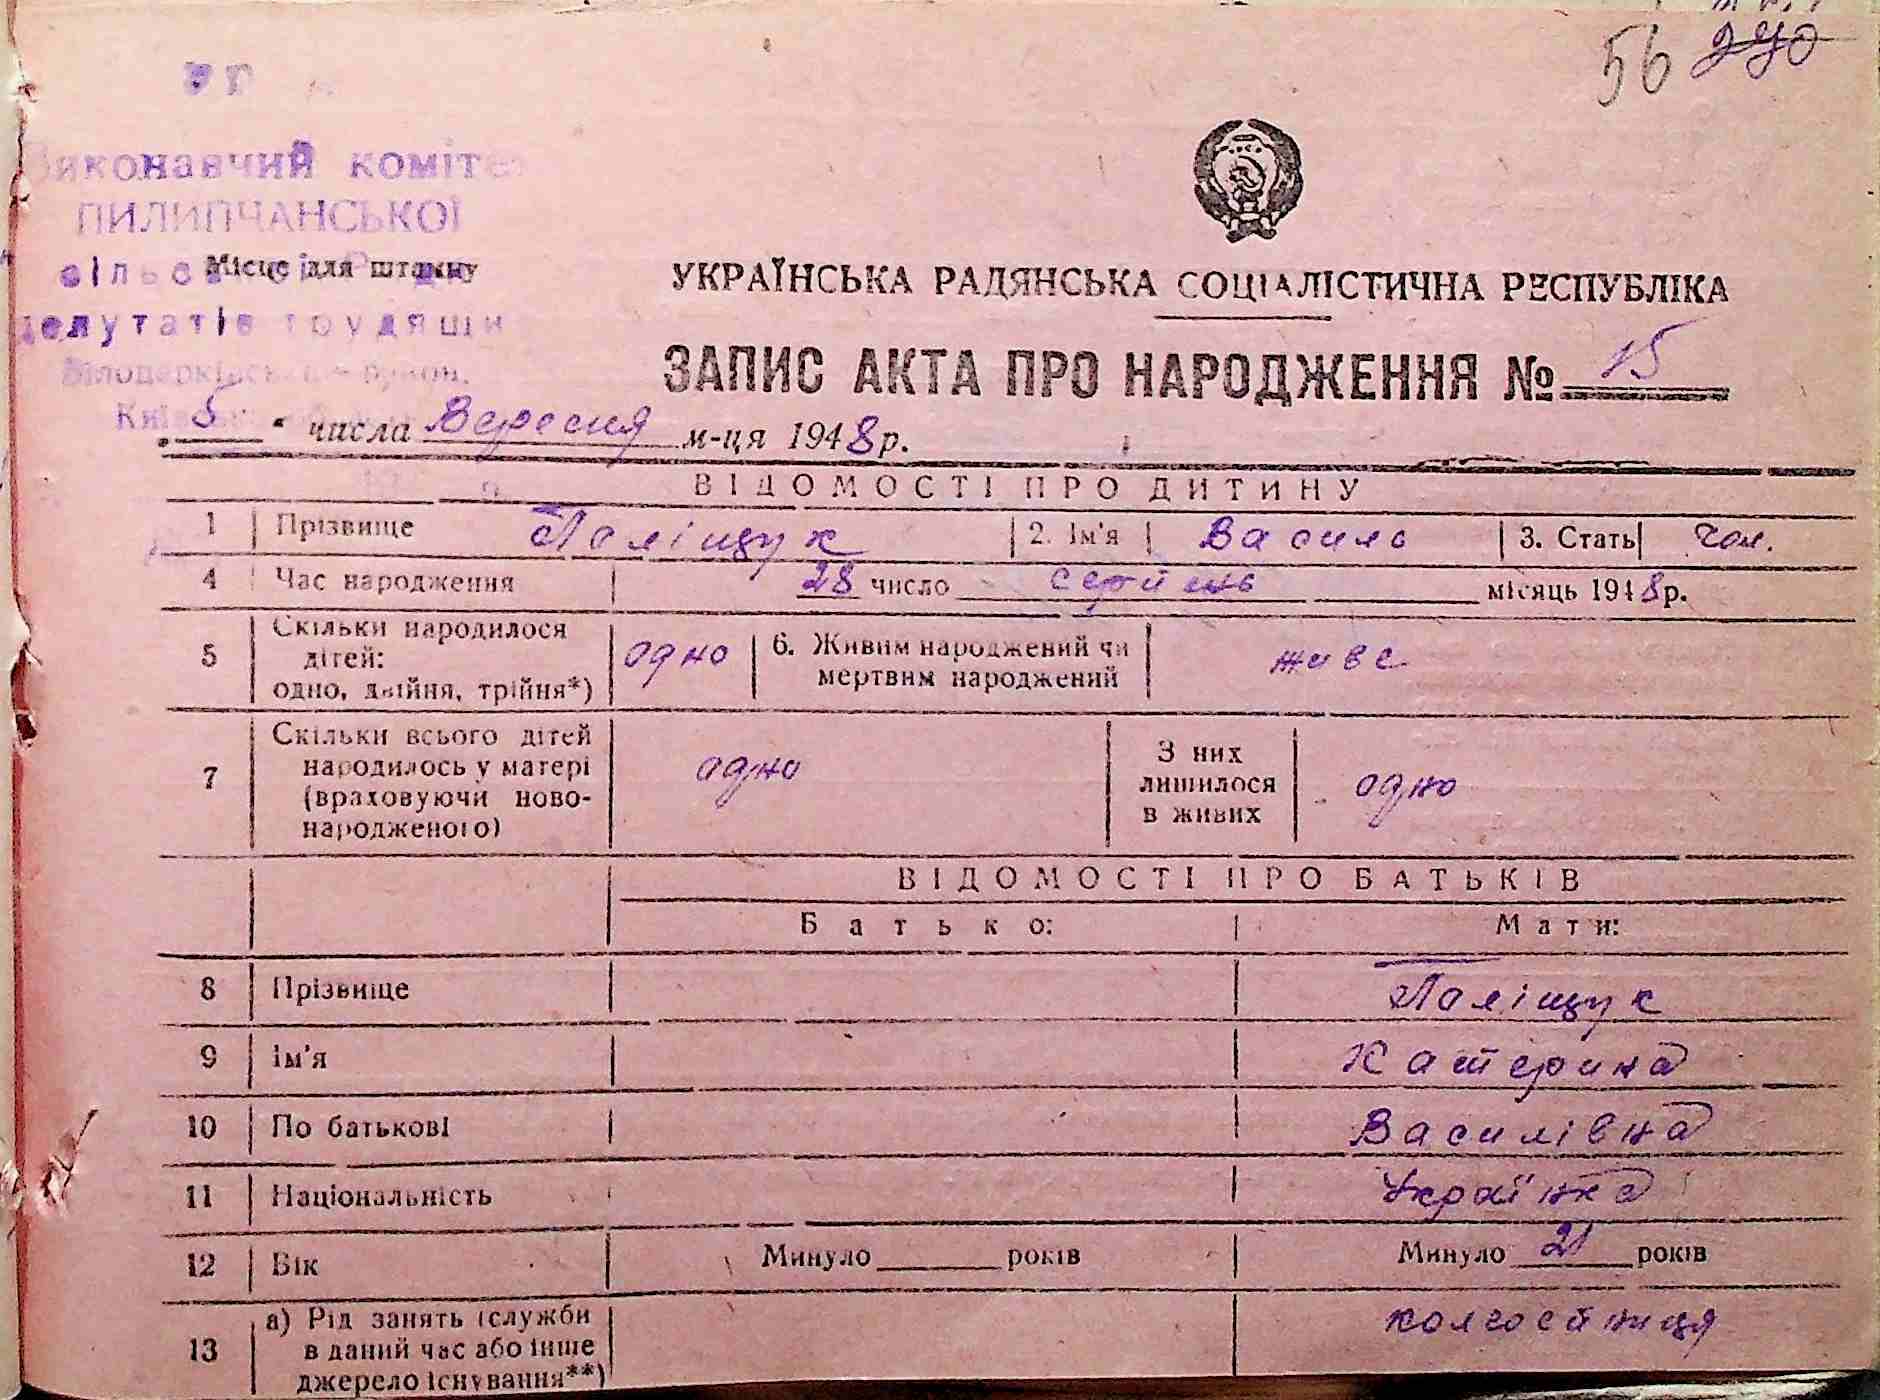 56 270
Виконавчий коміте
ПИЛИПЧАНСЬКОЇ
Місце для штампу
депутатів трудящи
УКРАЇНСЬКА РАДЯНСЬКА СОЦІАЛІСТИЧНА РЕСПУБЛІКА
ЗАПИС АКТА ПРО НАРОДЖЕННЯ № 15
„ 5 “ числа Вересня м-ця 1948 р.
ВІДОМОСТІ ПРО ДИТИНУ
1 Прізвище Поліщук 2. Ім'я Василь 3. Стать чол.
4 Час народження 28 число серпень місяць 1948 р.
5 Скільки народилося
дітей:
одно, двійня, трійня*) одно 6. Живим народжений чи
мертвим народжений живе
7 Скільки всього дітей
народилось у матері
(враховуючи ново-
народженого) одно З них
лишилося
в живих одно
ВІДОМОСТІ ПРО БАТЬКІВ
Батько: Мати:
8 Прізвище Поліщук
9 Ім'я Катерина
10 По батькові Василівна
11 Національність Українка
12 Вік Минуло років Минуло 21 років
13 а) Рід занять (служби
в даний час або інше
джерело існування**) колгоспниця